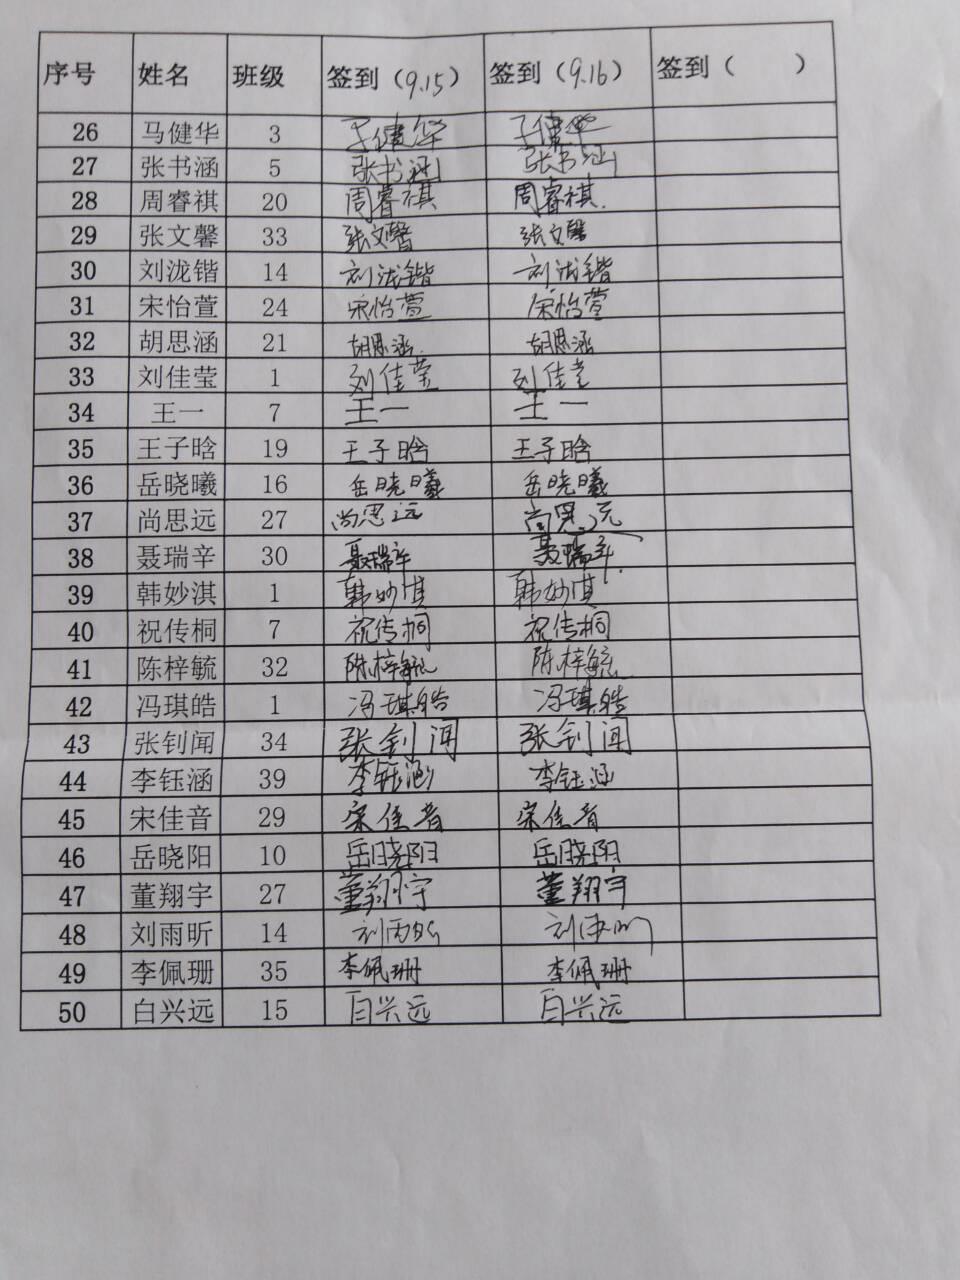 序号 姓名 班级 签到(9.15) 签到(9.16) 签到( )
26 马健华 3 马健华 马健华
27 张书涵 5 张书涵 张书涵
28 周睿祺 20 周睿祺 周睿祺.
29 张文馨 33 张文馨 张文馨
30 刘泷锴 14 刘泷锴 刘泷锴
31 宋怡萱 24 宋怡萱 宋怡萱
32 胡思涵 21 胡思涵 胡思涵
33 刘佳莹 1 刘佳莹 刘佳莹
34 王一 7 王一 王一
35 王子晗 19 王子晗 王子晗
36 岳晓曦 16 岳晓曦 岳晓曦
37 尚思远 27 尚思远 尚思远
38 聂瑞辛 30 聂瑞辛 聂瑞辛
39 韩妙淇 1 韩妙淇 韩妙淇
40 祝传桐 7 祝传桐 祝传桐
41 陈梓毓 32 陈梓毓 陈梓毓
42 冯琪皓 1 冯琪皓 冯琪皓
43 张钊闻 34 张钊闻 张钊闻
44 李钰涵 39 李钰涵 李钰涵
45 宋佳音 29 宋佳音 宋佳音
46 岳晓阳 10 岳晓阳 岳晓阳
47 董翔宇 27 董翔宇 董翔宇
48 刘雨昕 14 刘雨昕 刘雨昕
49 李佩珊 35 李佩珊 李佩珊
50 白兴远 15 白兴远 白兴远